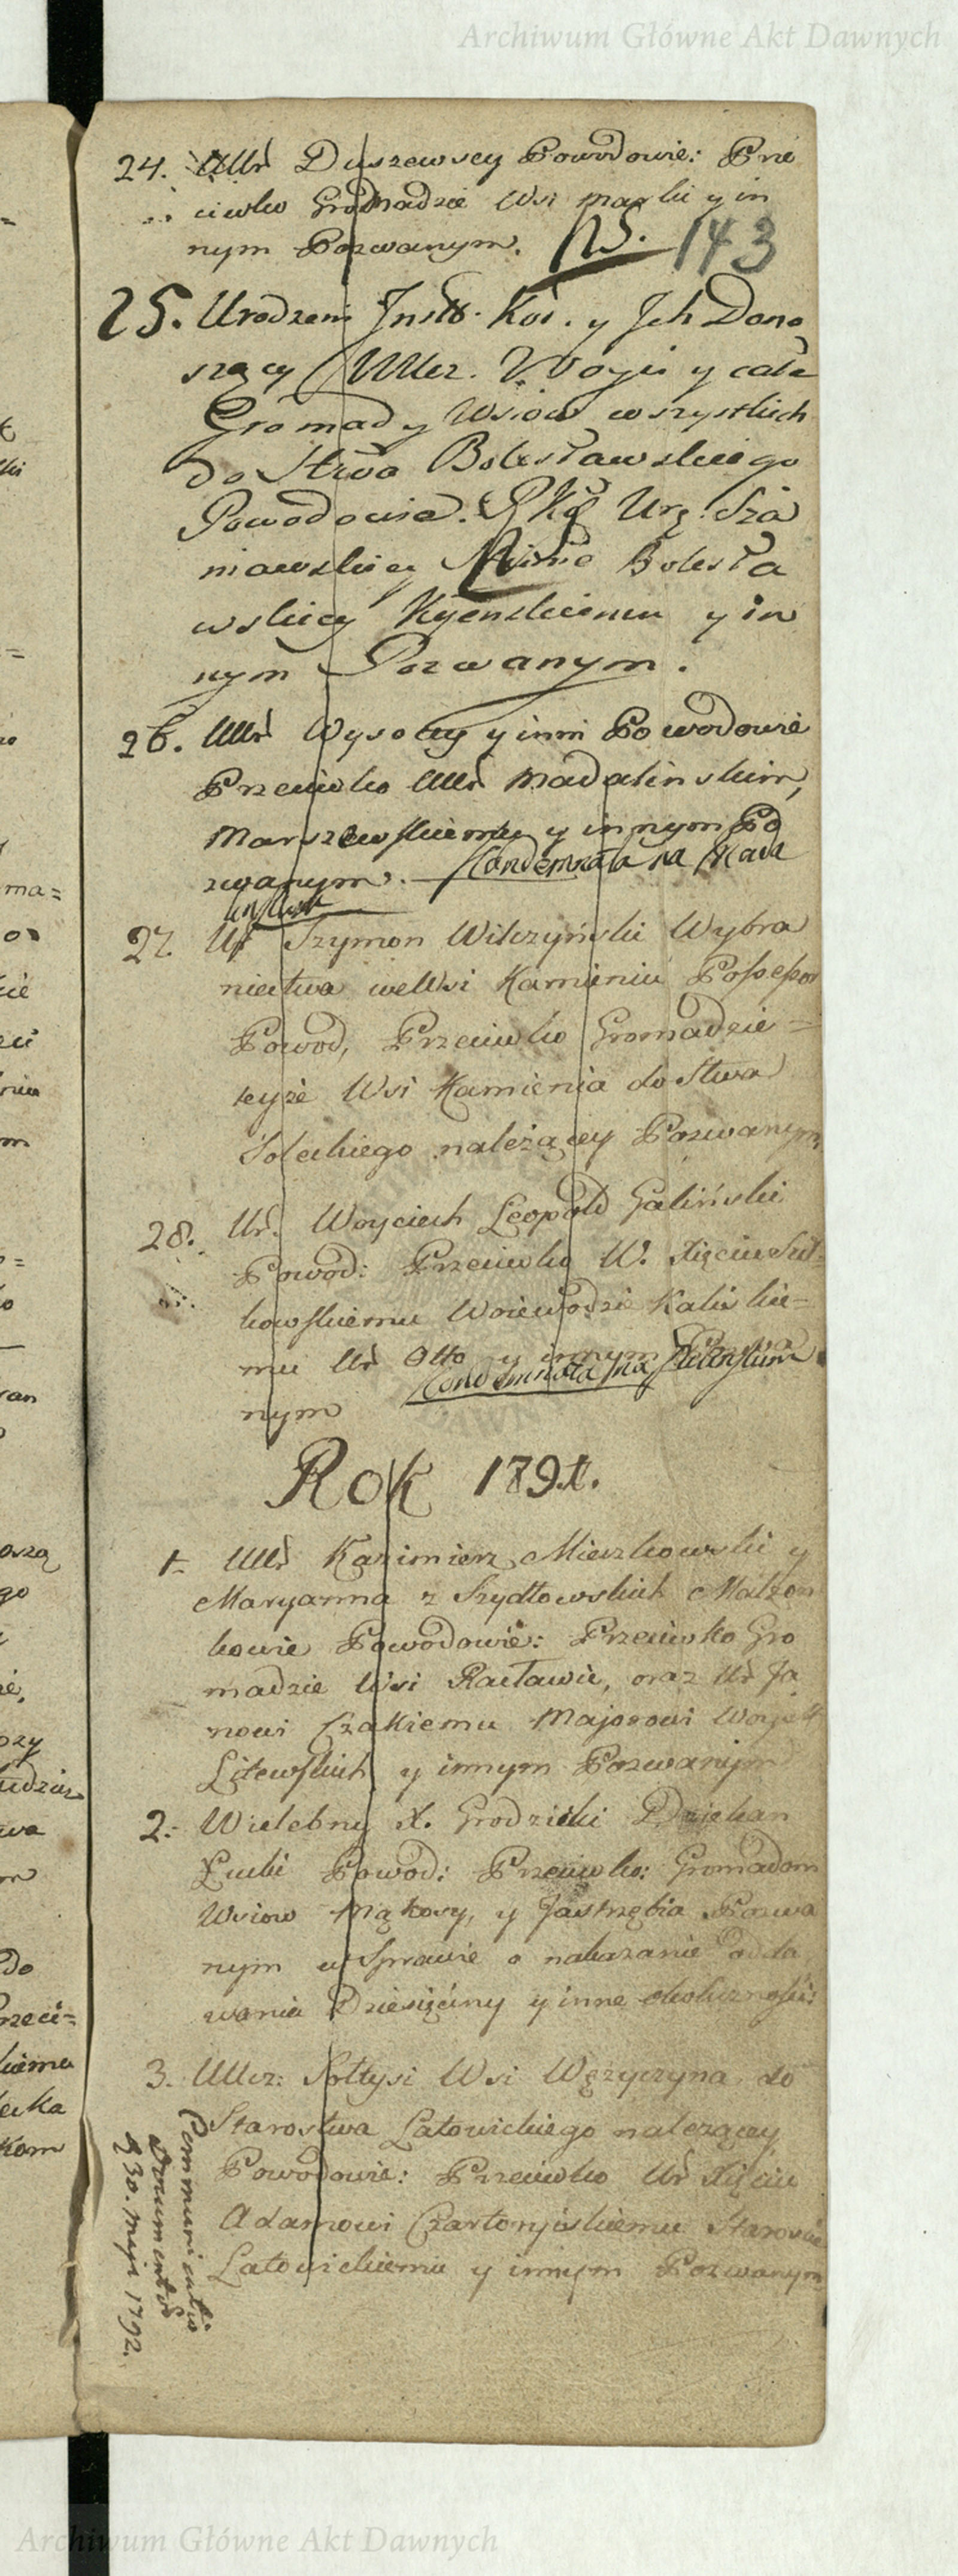 Archiwum Główne Akt Dawnych
24. UUr Duszewscy Powodowie: Prze
ciwko Gromadzie Wsi y in
nym Pozwanym. NS. 143
25. Urodzeni Inst. Kor. y Jch Dono
szący Uttcz. Woyci y całe
Gromady Wsiow wszystkich
do Stwa Bolesławskiego
Powodowie. Urz. Sza
niawskiey Bolesła
wskiey Kijenskiemu y in
nym Pozwanym.
26. UUr Wysoccy y inni Powodowie
Przeciwko UUr Madalinskim,
Marszewskiemu y innym Po
zwanym. Kondemnata na
27. Ur Szymon Wilczyński Wybra
niectwa weWsi Kamieniu Possessor
Powod, Przeciwko Gromadzie =
teyże Wsi Kamienia do Stwa
Soleckiego należącey Pozwanym
28. Ur. Woyciech Leopold Galiński
Powod: Przeciwko W. Xięciu Suł=
kowskiemu Woiewodzie Kaliskie=
mu Ur Otto y innym Pozwa
nym Kondemnata na
Rok 1791.
1. UUr Kazimierz Mieszkowski y
Maryanna z Szydłowskich Małzon
kowie Powodowie: Przeciwko Gro
madzie Wsi Racławic, oraz Ur Ja
nowi Czakiemu Majorowi Woysk
Litewskich y innym Pozwanym
2. Wielebny X. Grodzicki Dziekan
Łucki Powod: Przeciwko: Gromadom
Wsiow Mąkosy, y Jastrzębia Pozwa
nym w Sprawie o nakazanie odda
wania Dziesięciny y inne okoliczności:
3. Uttcz: Sołtysi Wsi Wężyczyna do
Starostwa Latowickiego należącey
Powodowie: Przeciwko Ur Xięciu
Adamowi Czartoryiskiemu Staroście
Latowickiemu y innym Pozwanym
Communicatio
Documentor
d 30. Maja 1792.
Archiwum Główne Akt Dawnych